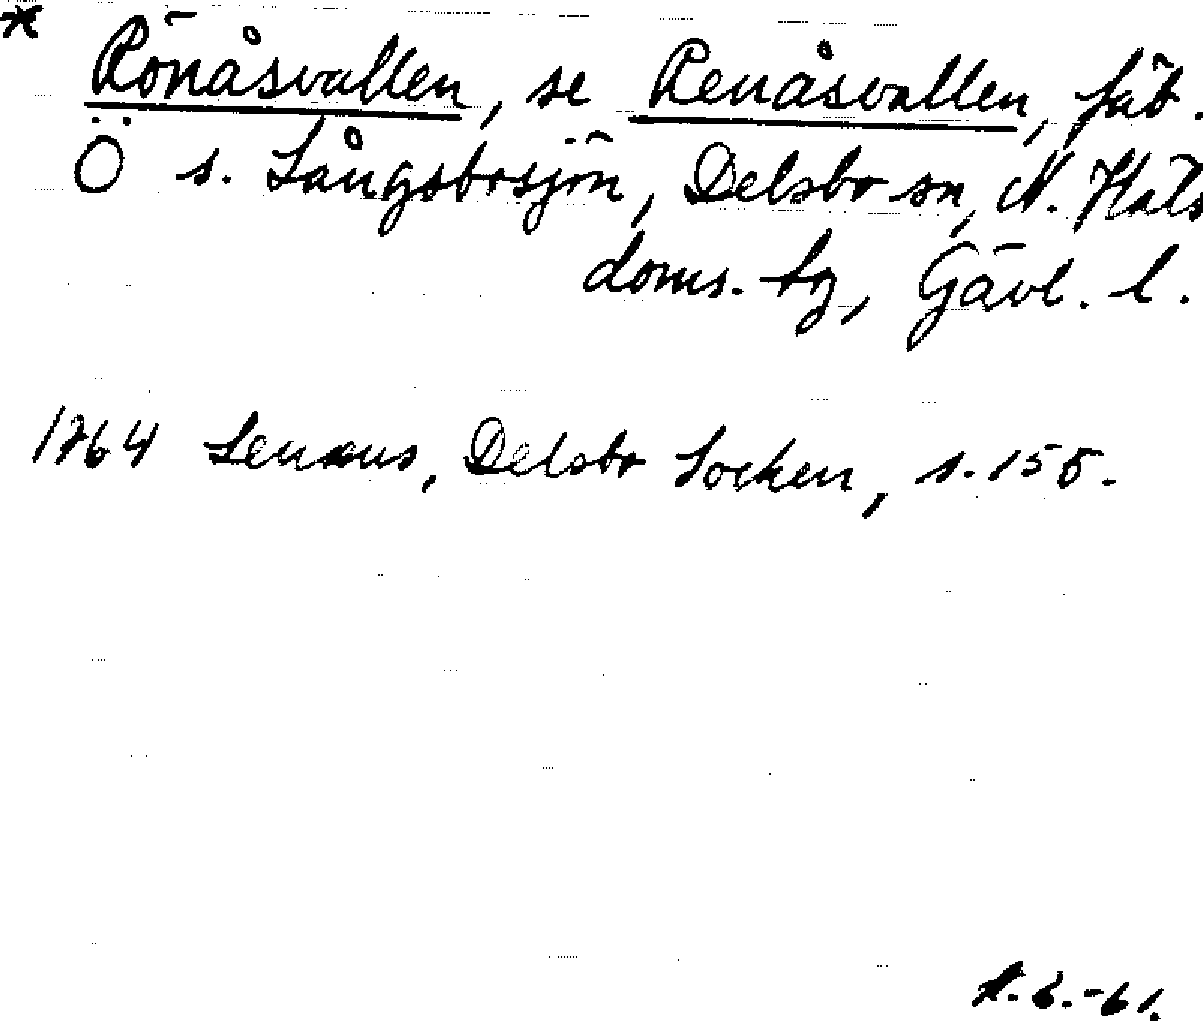 * Rönåsvallen, se Renåsvallen, fäb.
Ö s. Långsbosjön, Delsbo sn, N. Häls
doms. tg, Gävl. l.
1764 Lenæus, Delsbo Socken, s. 155.